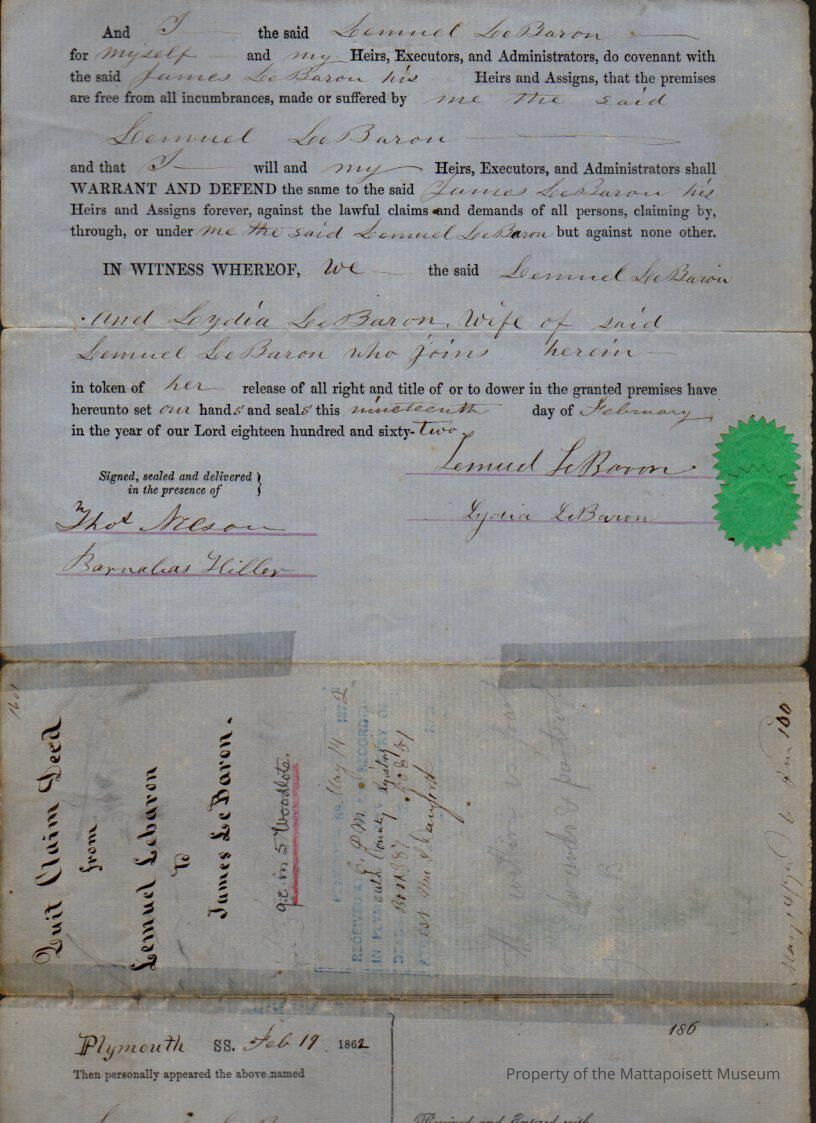 And I the said Lemuel LeBaron
for myself and my Heirs, Executors, and Administrators, do covenant with
the said James LeBaron his Heirs and Assigns, that the premises
are free from all incumbrances, made or suffered by me the said
Lemuel LeBaron
and that I will and my Heirs, Executors, and Administrators shall
WARRANT AND DEFEND the same to the said James LeBaron his
Heirs and Assigns forever, against the lawful claims and demands of all persons, claiming by,
through, or under me the said Lemuel LeBaron but against none other.
IN WITNESS WHEREOF, We the said Lemuel LeBaron
and Lydia LeBaron, Wife of said
Lemuel LeBaron who joins herein
in token of her release of all right and title of or to dower in the granted premises have
hereunto set our hands and seals this nineteenth day of February
in the year of our Lord eighteen hundred and sixty-two
Signed, sealed and delivered
in the presence of
Lemuel LeBaron
Lydia LeBaron
Thos Nelson
Barnabas Hiller
Quit Claim Deed
from
Lemuel Lebaron
to
James LeBaron.
in 5 Woodlots.
SS. May 14 1872
RECEIVED AND RECORDED
IN PLYMOUTH County Registry OF
The within is part
100
Plymouth SS. Feb 19 1862
Then personally appeared the above named
186
Property of the Mattapoisett Museum